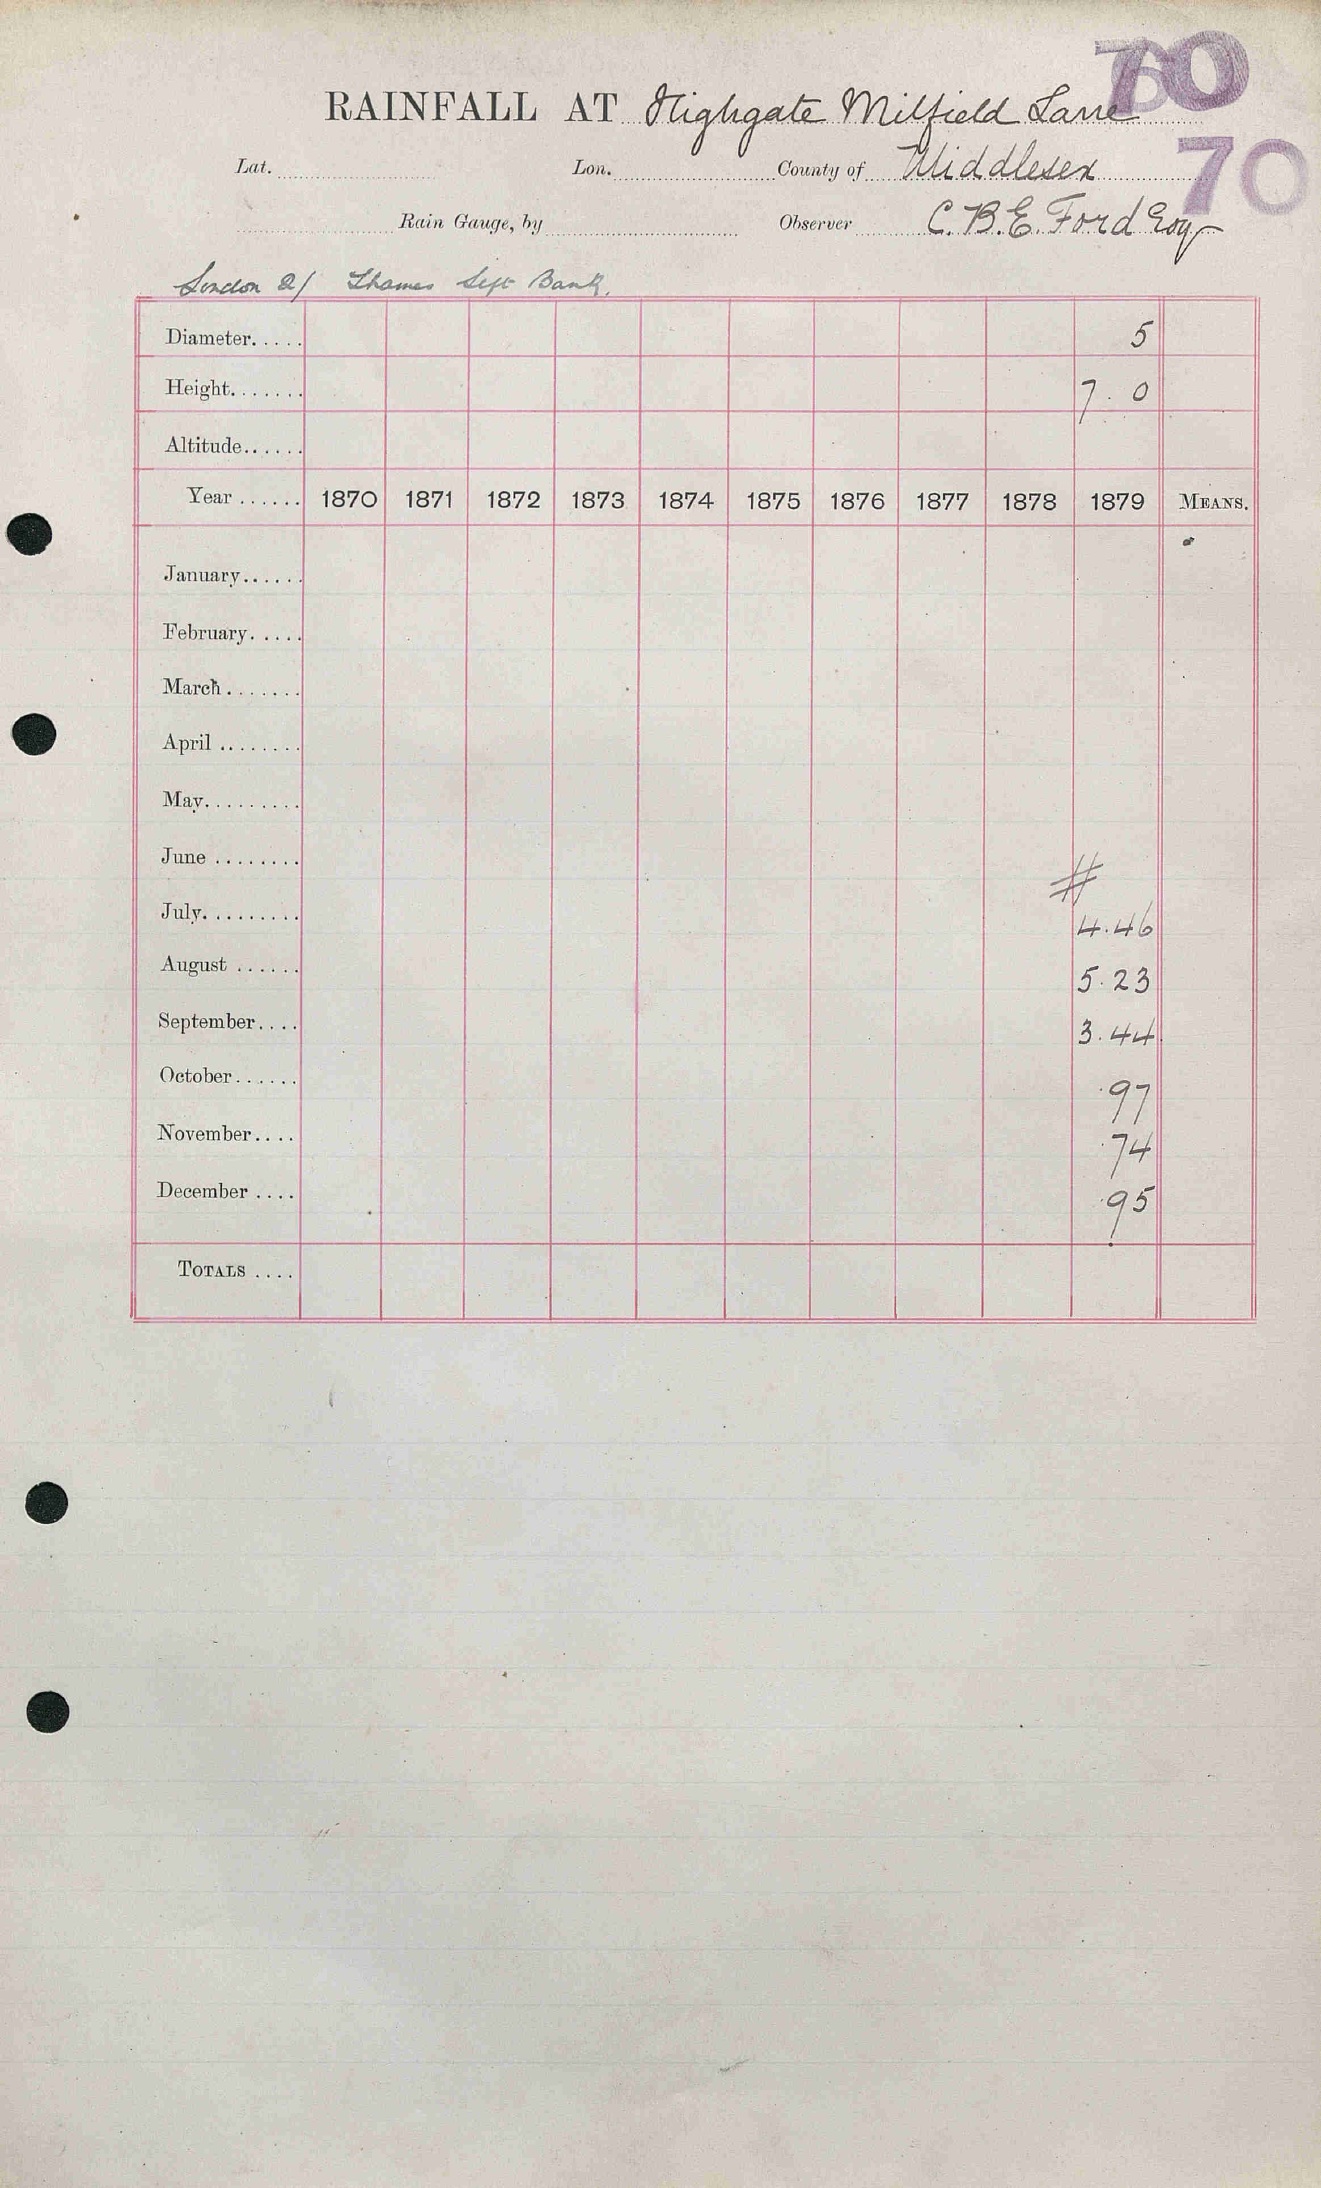 70
RAINFALL AT Highgate Milfield Lane
70
Lat. Lon. County of Middlesex
Rain Gauge, by Observer C.B.E. Ford Esq
London 2/ Thames Left Bank.
Diameter..... 5
Height....... 7. 0
Altitude......
Year ...... 1870 1871 1872 1873 1874 1875 1876 1877 1878 1879 MEANS.
January......
February.....
March.......
April ........
May.........
June ........
#
July......... 4.46
August ...... 5.23
September.... 3.44
October...... .97
November.... .74
December .... .95
TOTALS ....